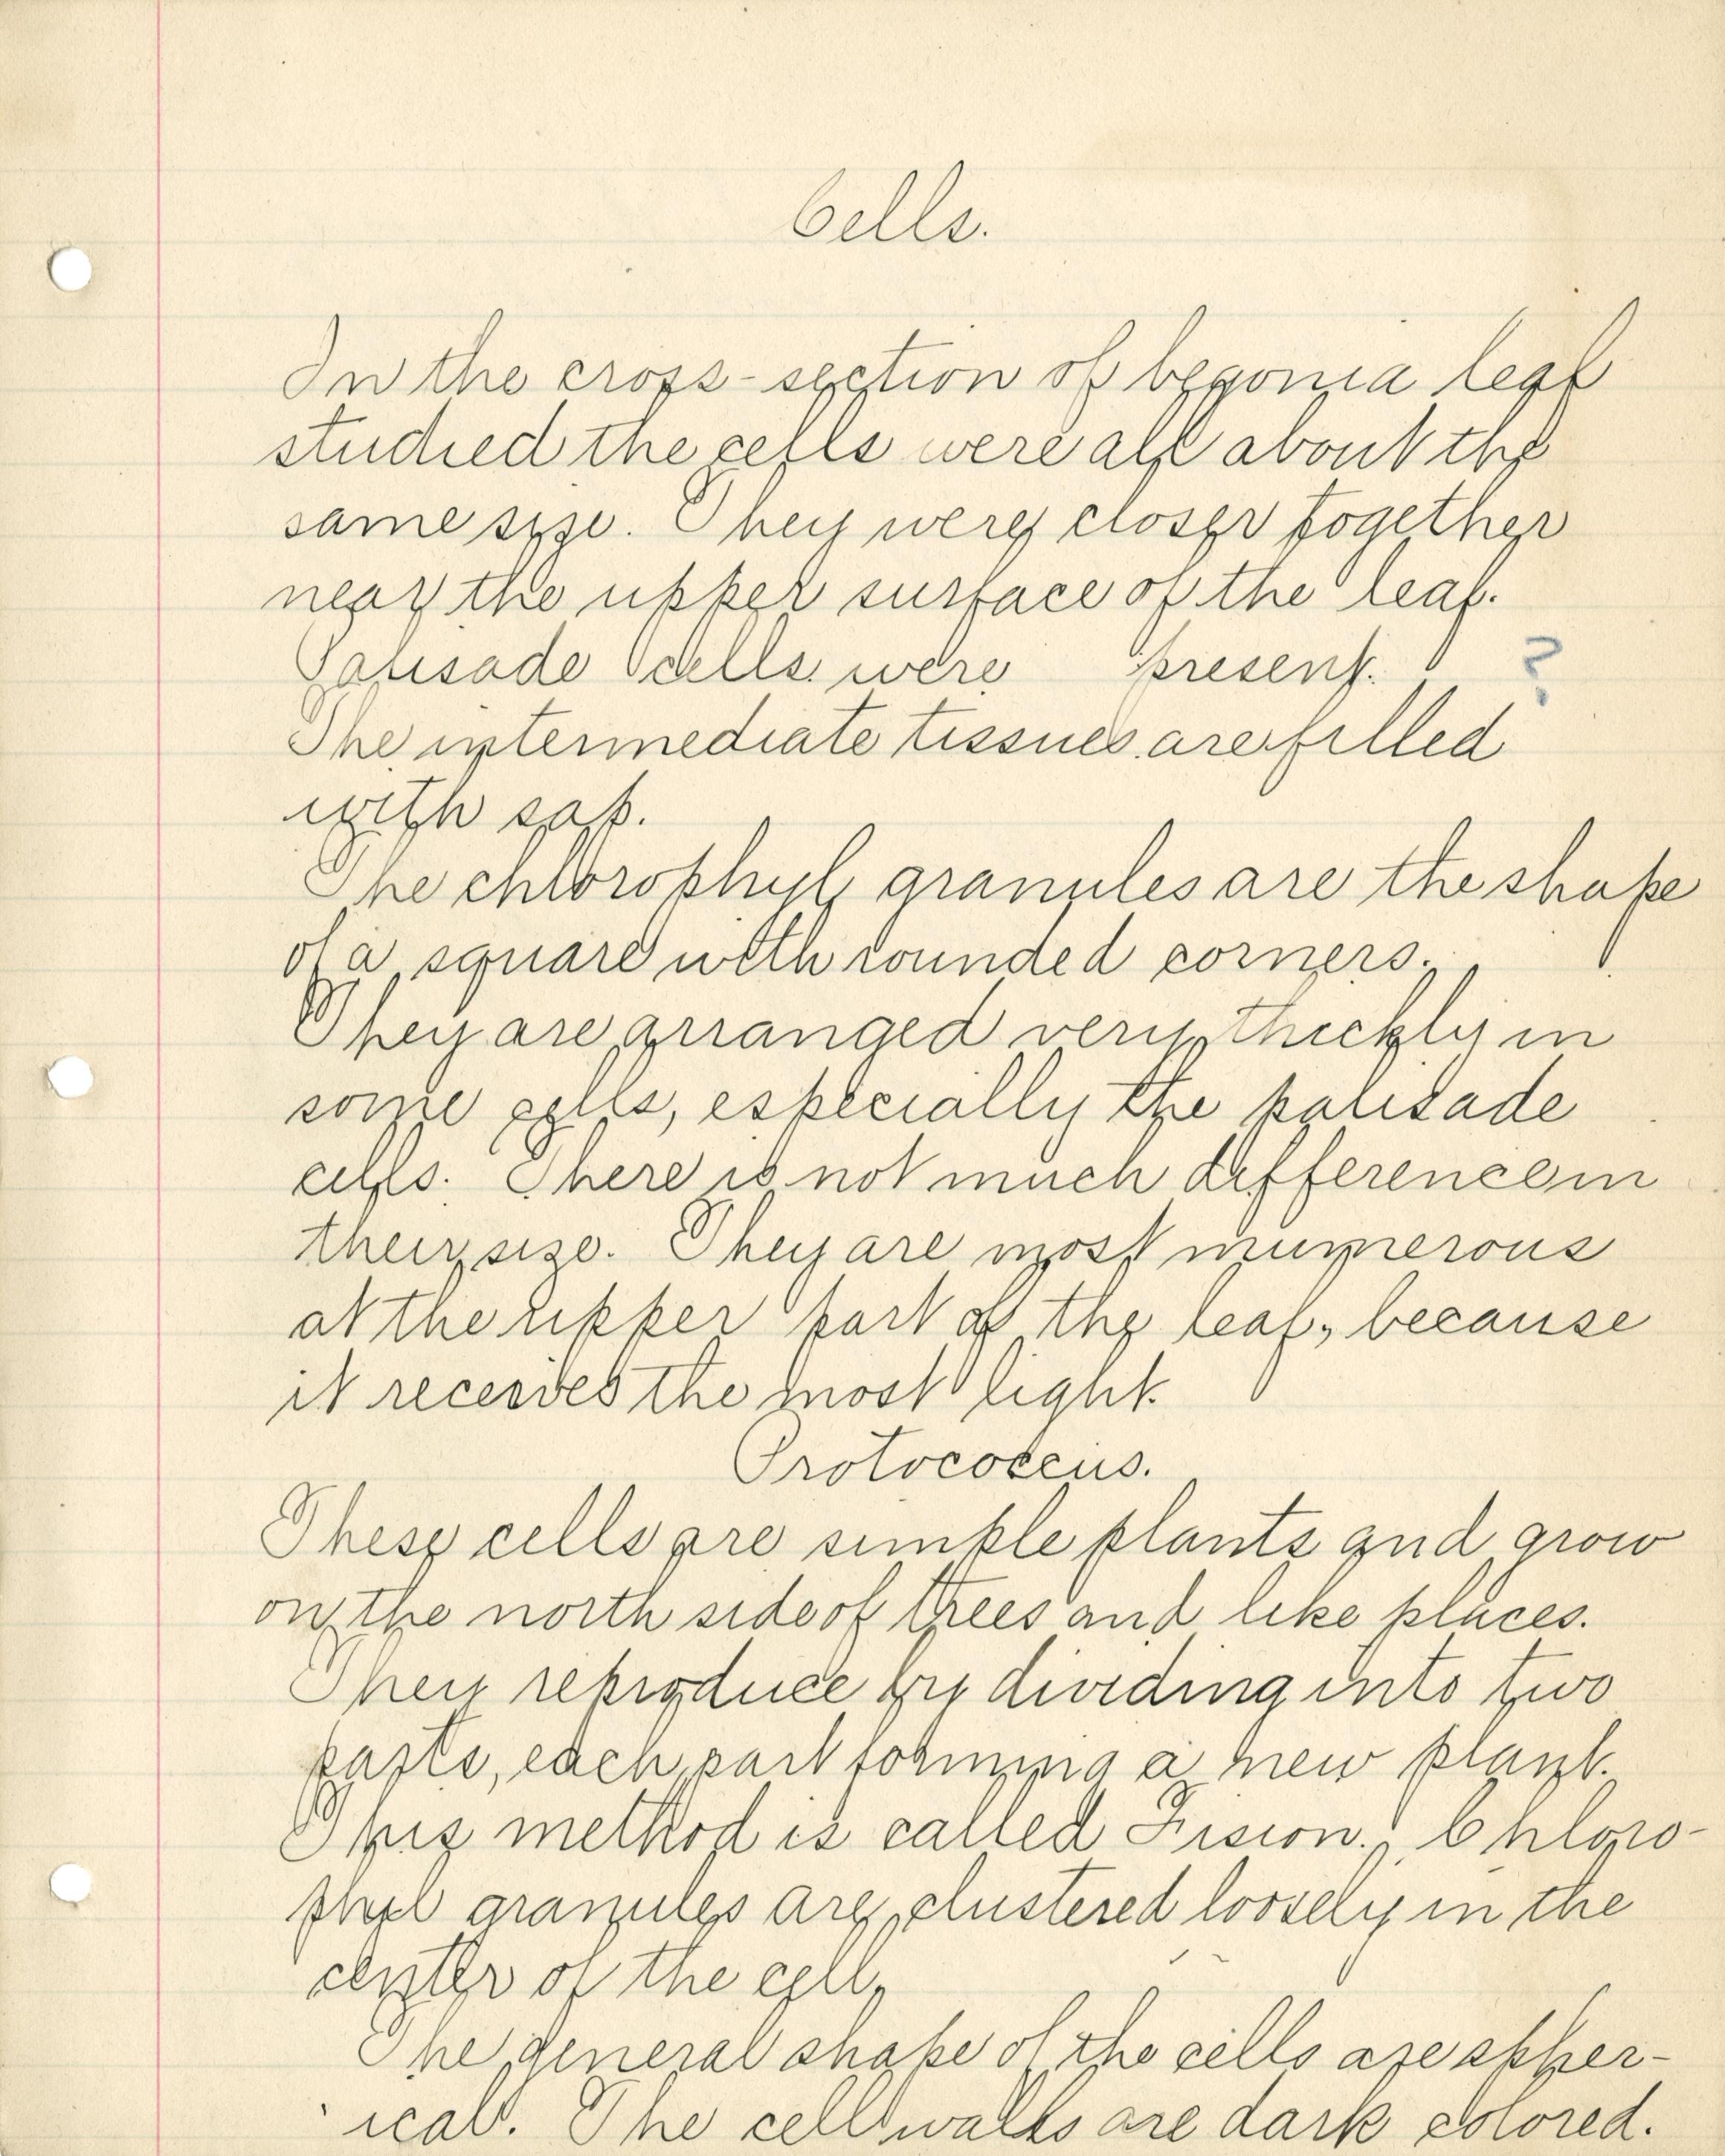 Cells.
In the cross-section of begonia leaf
studied the cells were all about the
same size. They were closer together
near the upper surface of the leaf.
Palisade cells were present. ?
The intermediate tissues are filled
with sap.
The chlorophyl granules are the shape
of a square with rounded corners.
They are arranged very thickly in
some cells, especially the palisade
cells. There is not much difference in
their size. They are most numerous
at the upper part of the leaf, because
it receives the most light.
Protococcus.
These cells are simple plants and grow
on the north side of trees and like places.
They reproduce by dividing into two
parts, each part forming a new plant.
This method is called Fision. Chloro-
phyl granules are clustered loosely in the
center of the cell,
The general shape of the cells are spher-
ical. The cell walls are dark colored.